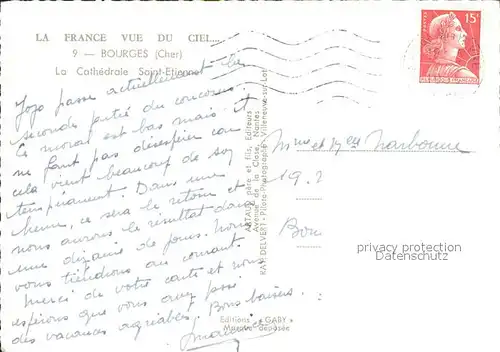 LA FRANCE VUE DU CIEL...
9 — BOURGES (Cher)
La Cathédrale Saint-Etienne
Jojo passe actuellement la
seconde partie du concours.
Le moral est bas mais il
ne faut pas désespérer car
cela vient beaucoup de son
tempérament. Dans une
heure, ce sera le retour et
nous aurons le résultat dans
une dizaine de jours. Nous
vous tiendrons au courant.
Merci de votre carte et nous
espérons que vous avez passé
des vacances agréables. Bons baisers.
ARTAUD père et fils, Editeurs
Avenue de la Close, Nantes
RAY DELVERT - Pilote-Photographe - Villeneuve-sur-Lot
Editions "GABY"
Marque déposée
15F
POSTES
Mme et Narbonne
19
privacy protection
Datenschutz